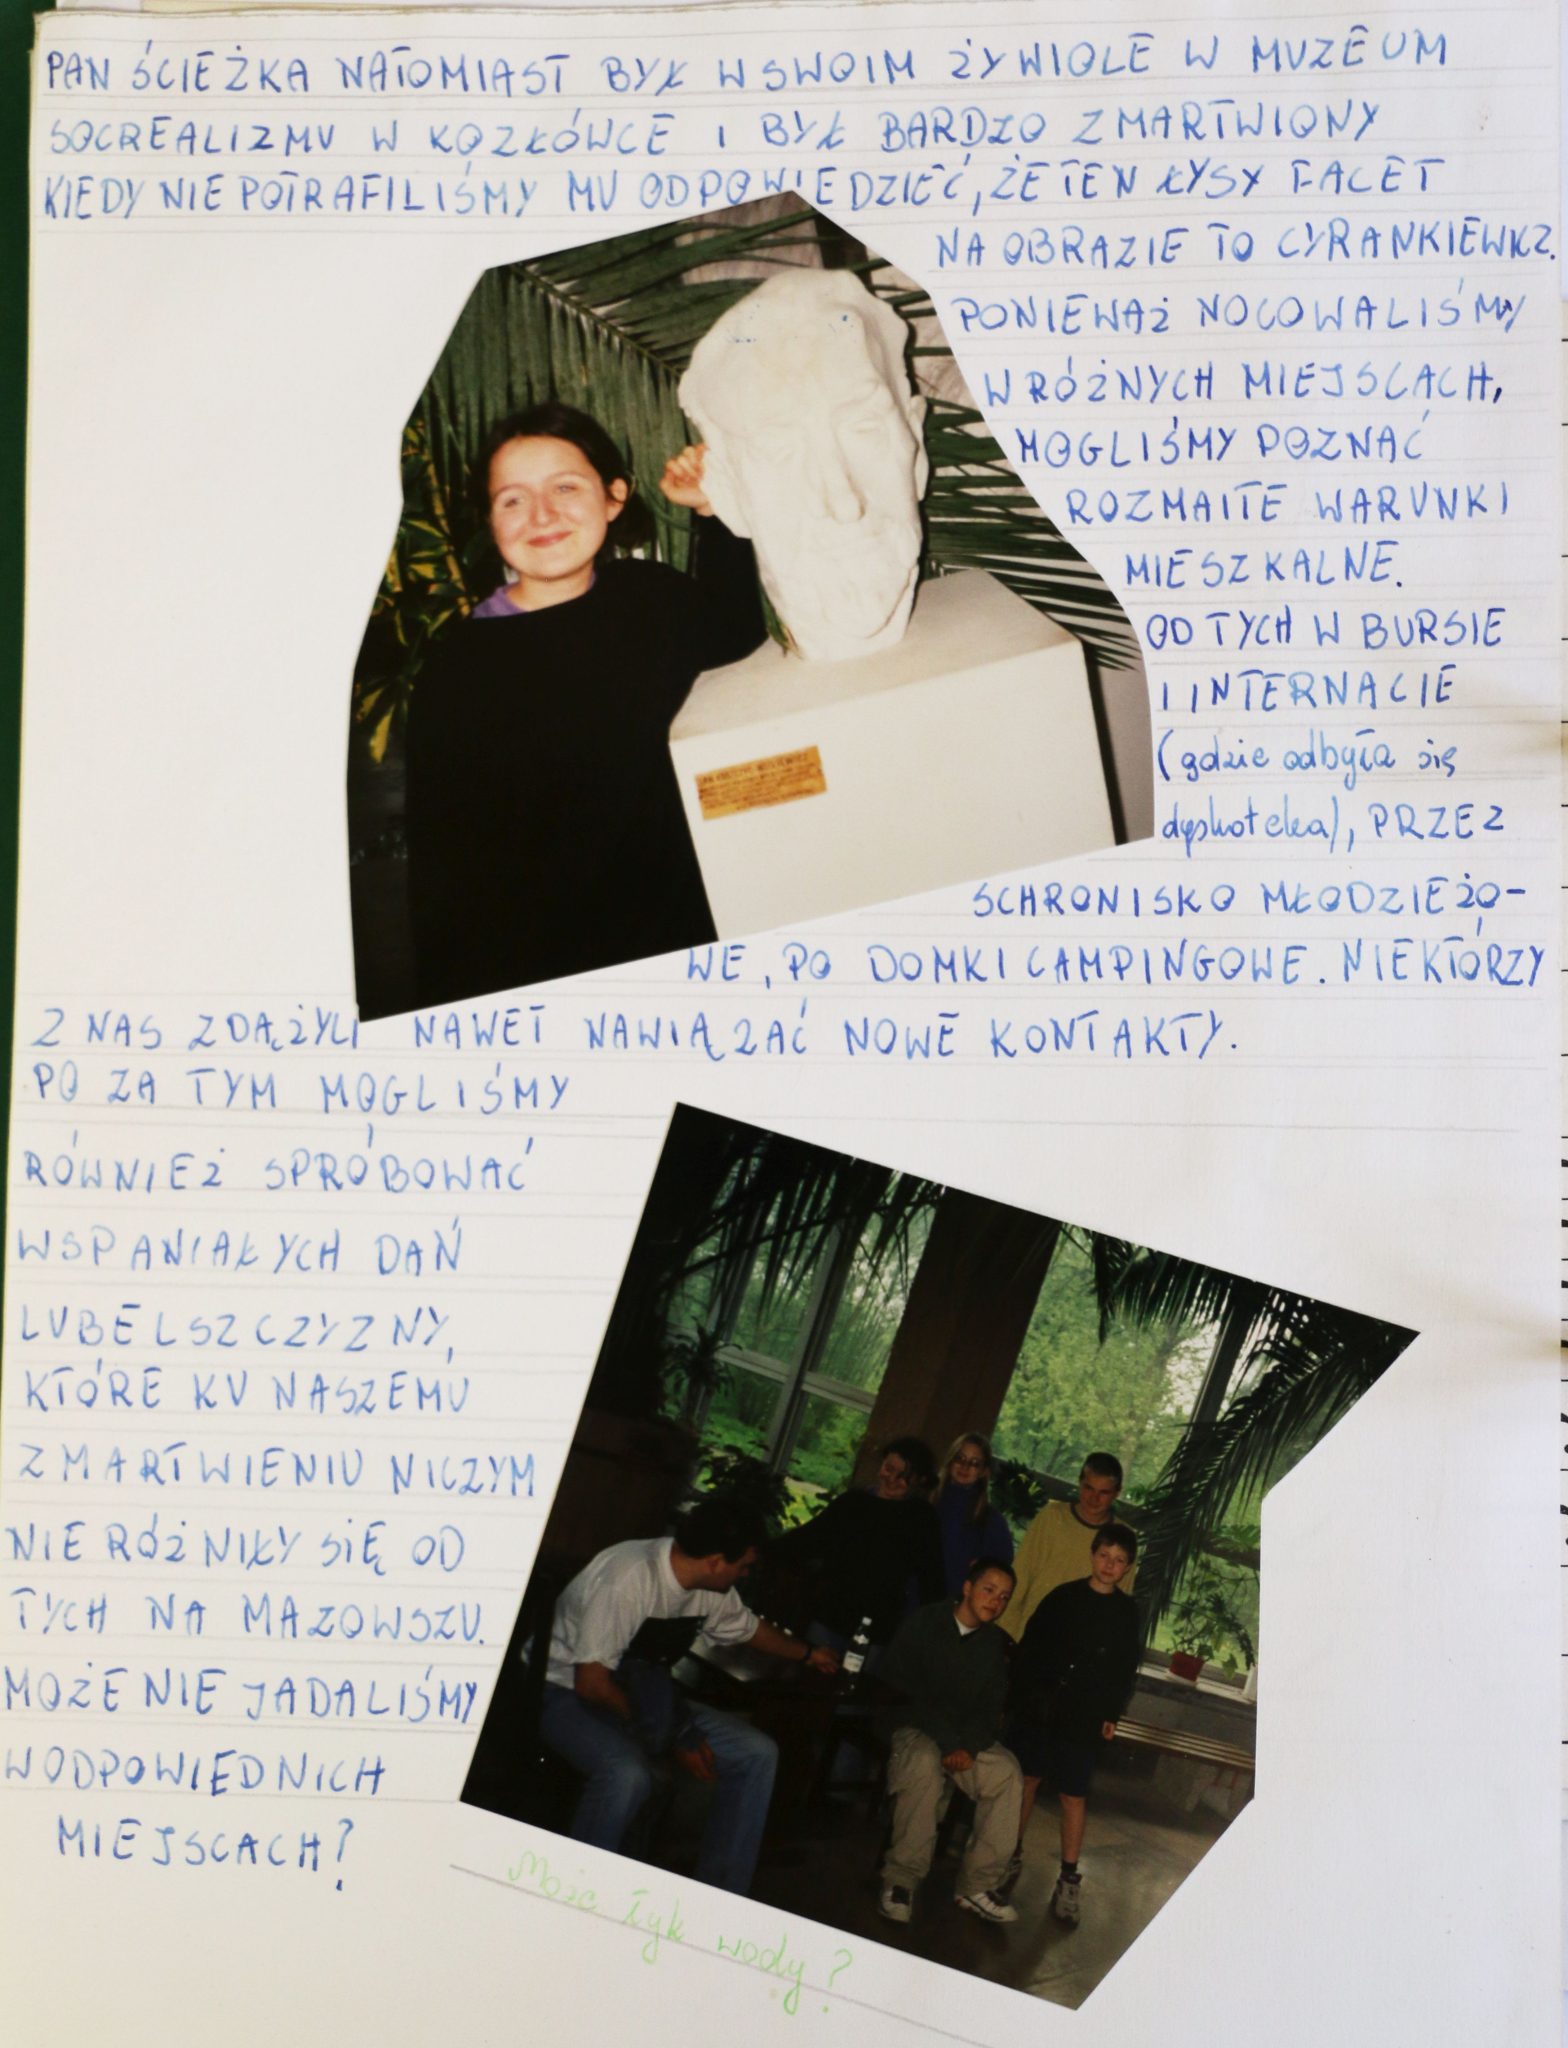 PAN ŚCIEŻKA NATOMIAST BYŁ W SWOIM ŻYWIOLE W MUZEUM
SOCREALIZMU W KOZŁÓWCE I BYŁ BARDZO ZMARTWIONY
KIEDY NIE POTRAFILIŚMY MU ODPOWIEDZIEĆ, ŻE TEN ŁYSY FACET
NA OBRAZIE TO CYRANKIEWICZ.
PONIEWAŻ NOCOWALIŚMY
W RÓŻNYCH MIEJSCACH,
MOGLIŚMY POZNAĆ
ROZMAITE WARUNKI
MIESZKALNE.
OD TYCH W BURSIE
I INTERNACIE
(gdzie odbyła się
dyskoteka), PRZEZ
SCHRONISKO MŁODZIEŻO-
WE, PO DOMKI CAMPINGOWE. NIEKTÓRZY
Z NAS ZDĄŻYLI NAWET NAWIĄZAĆ NOWE KONTAKTY.
PO ZA TYM MOGLIŚMY
RÓWNIEŻ SPRÓBOWAĆ
WSPANIAŁYCH DAŃ
LUBELSZCZYZNY,
KTÓRE KU NASZEMU
ZMARTWIENIU NICZYM
NIE RÓŻNIŁY SIĘ OD
TYCH NA MAZOWSZU.
MOŻE NIE JADALIŚMY
W ODPOWIEDNICH
MIEJSCACH?
Może łyk wody?